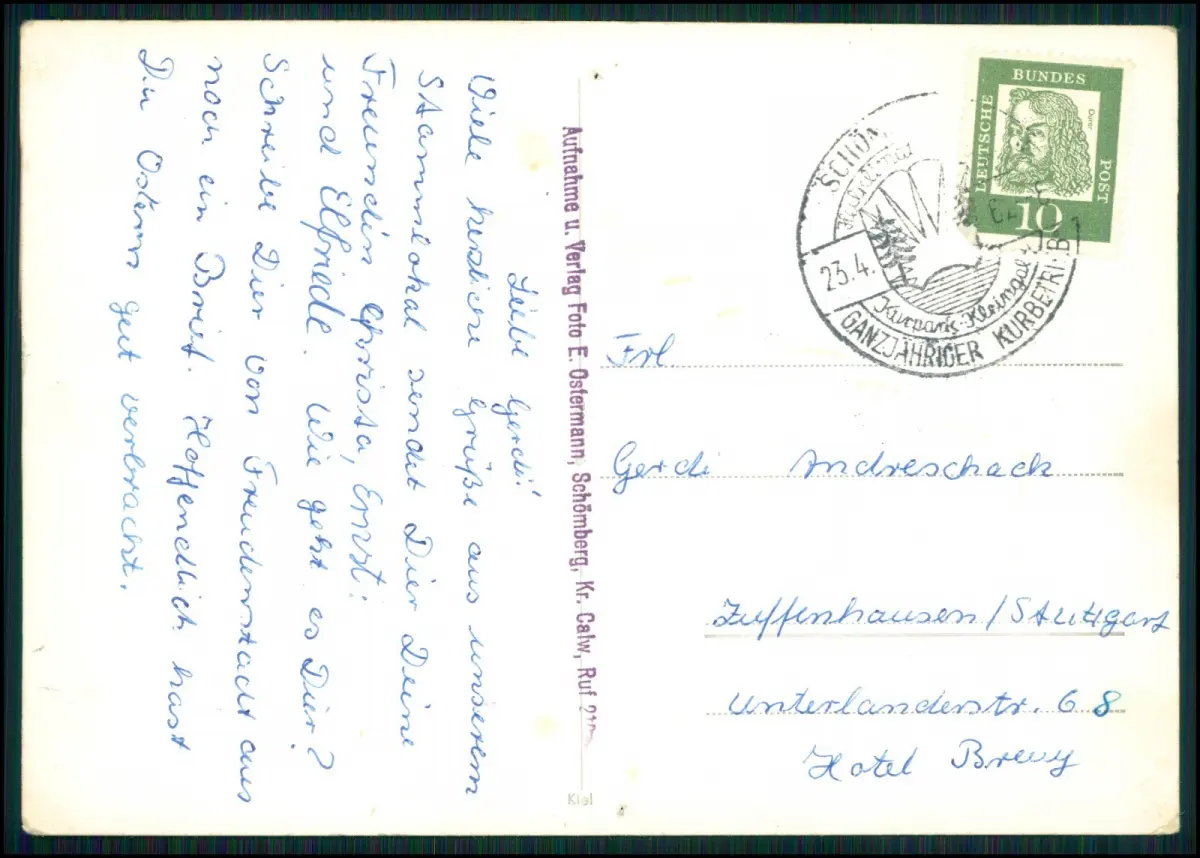 Liebe Gerdi!
Viele herzliche Grüße aus unserem
Stammslokal sendet Dier Deine
Freundin Christa, Ernst!
und Elfriede. Wie geht es Dier?
Schreibe Dier von Freudenstadt aus
noch ein Brief. Hoffendlich hast
Du Ostern gut verbracht.
Aufnahme u. Verlag Foto E. Ostermann, Schömberg, Kr. Calw, Ruf
Kiel
DEUTSCHE BUNDES POST
Dürer
10
SCHÖM
23.4.
Kurpark-Kleingolf
GANZJÄHRIGER KURBETRIEB
Frl.
Gerdi Andreschack
Zuffenhausen/Stuttgart
Unterländerstr. 68
Hotel